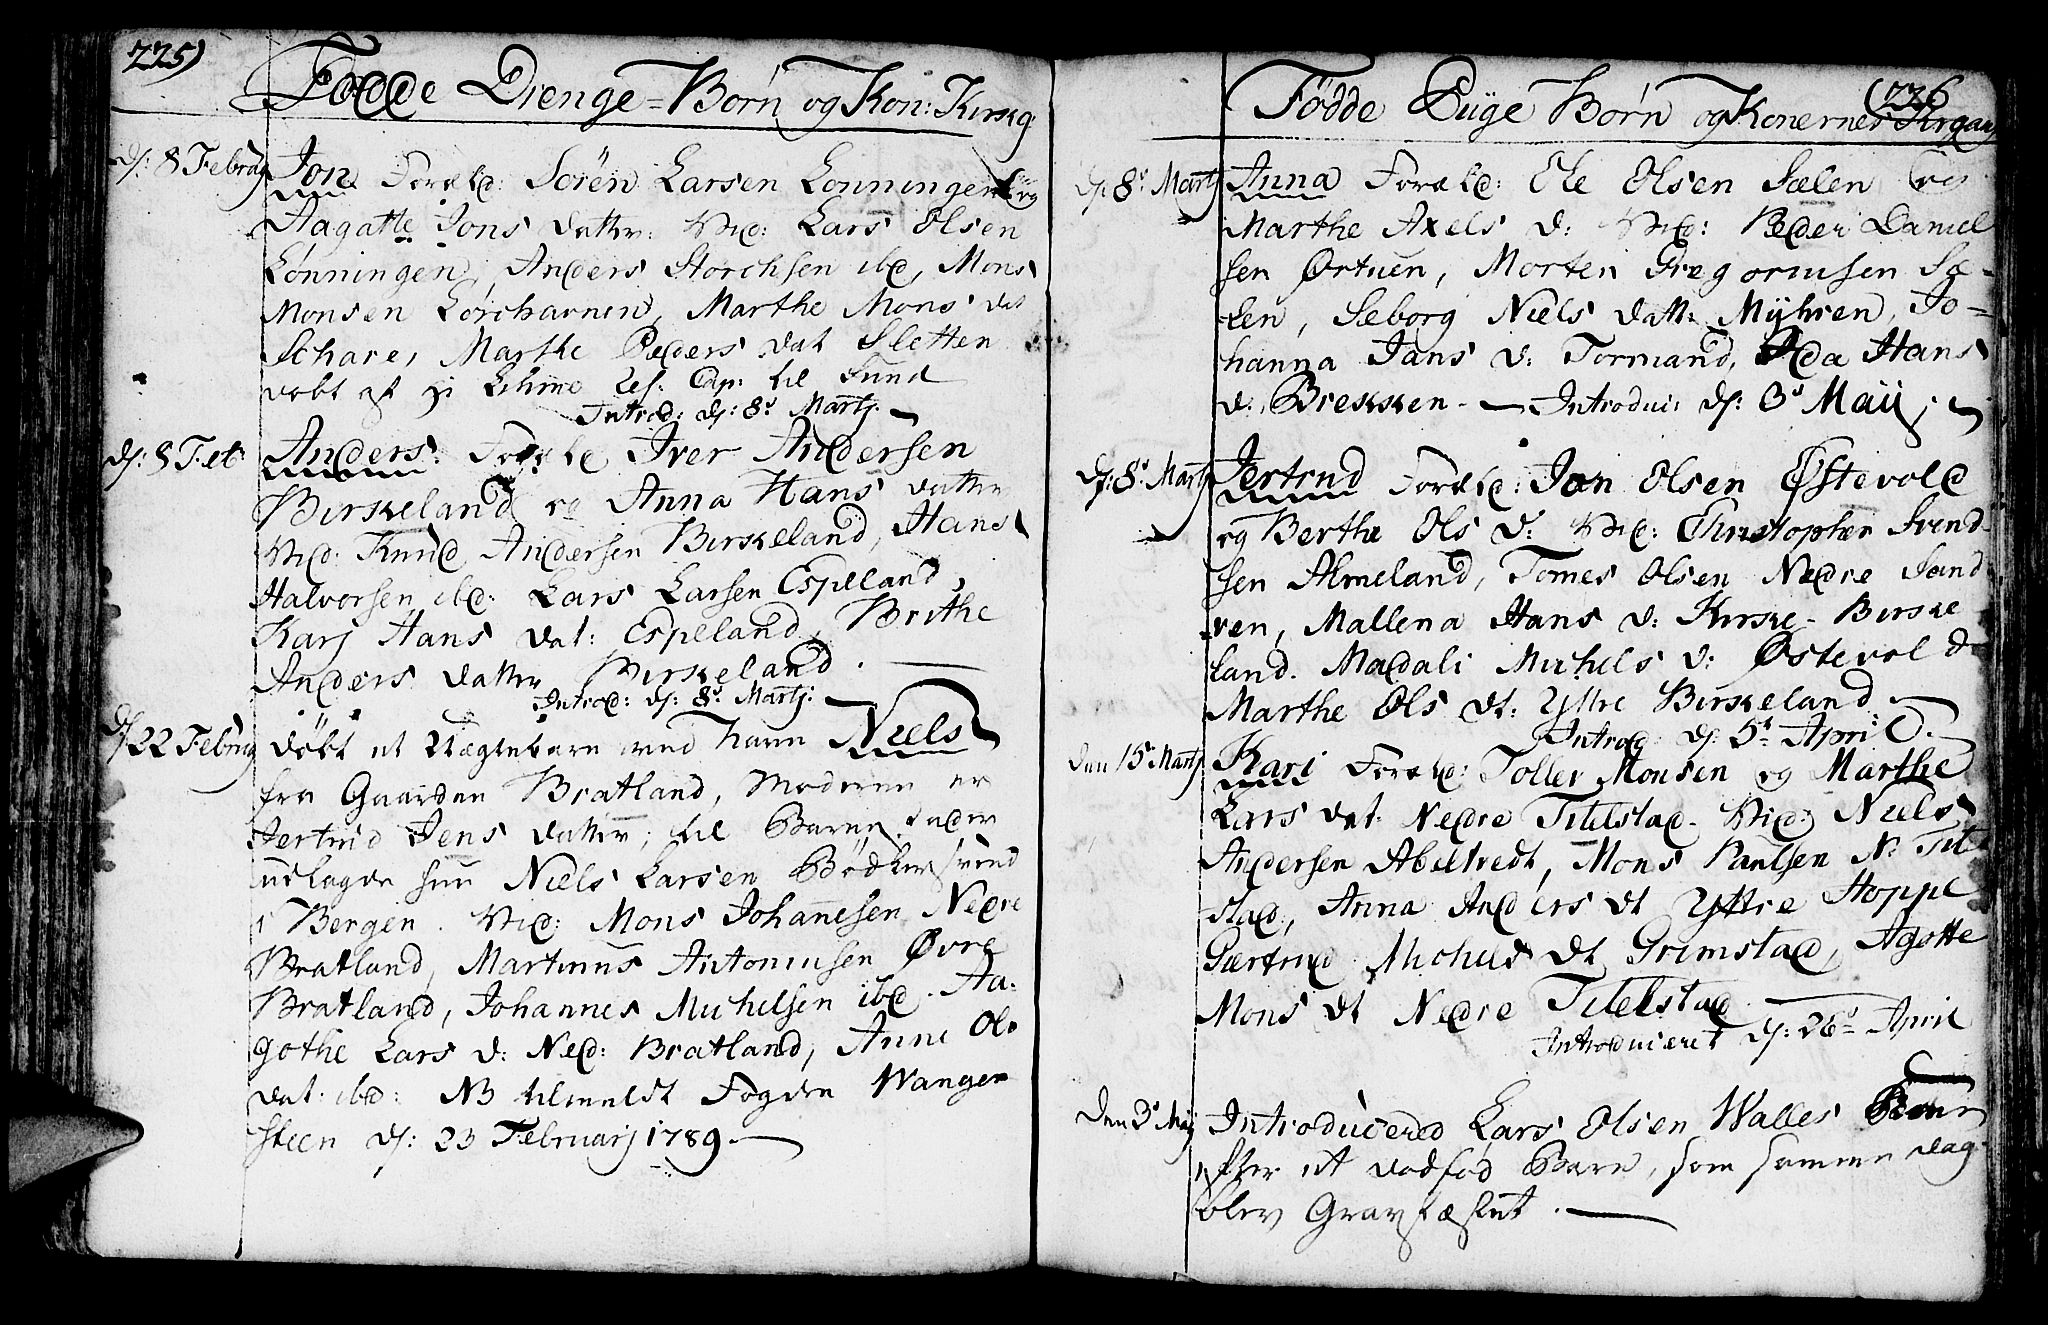 225)
Fødde Drenge-Børn og Kon: Kirkg
d: 8 Februarj
Jon Foræld: Sören Larsen Lonningen og
Aagatte Jons datter: Vid: Lars Olsen
Lønningen, Anders Storchsen ibd, Mons
Monsen Lørchavnen, Marthe Mons dat
Schare, Marthe Peders dat Sletten
döbt af Hr Lehme Res: Cap: til Fane
Introd: d: 8de Martj.
d: 8 Feb
Anders: Foræld Iver Andersen
Birkeland og Anna Hans datter
Vid: Knud Andersen Birkeland, Hans
Halvorsen ibd: Lars Larsen Espeland,
Karj Hans dat: Espeland, Brithe
Anders datter Birkeland.
Introd: d: 8de Martj:
d: 22 Februarj
döbt et Uægte barn ved Navn Niels
fra Gaarden Bratland, Moderen er
Jertrud Jens datter, til Barne fader
udlagde hun Niels Larsen Bödker svend
i Bergen. Vid: Mons Johannesen Nedre
Bratland, Martinus Antoniusen Øvre
Bratland, Johannes Michelsen ibd. Aa-
gothe Lars d: Ned: Bratland, Anne Ols
dat: ibd: NB tilmeldt Fogden Wangen
steen d: 23 Februarj 1789.
(226
Fødde Piige Børn og Konernes Kirgang
d: 8de Martj
Anna Foræld: Ole Olsen Sælen og
Marthe Axels d: Vid: Peder Daniel
sen Ørtuen, Morten Gregoriusen Sæ-
len, Seborg Niels datt: Mÿhren, Jo-
hanna Jans d: Tormand, Oda Hans
d: Brekken - Introduc: d: 3de Maii
d: 8de Martj
Jertrud Foræld: Jan Olsen Østevold
og Berthe Ols d: Vid: Christopher Svend
sen Almeland, Tomes Olsen Nedre Sand
ven, Mallena Hans d: Kirke-Birke
land. Madali Michels d: Østevold
Marthe Ols dt: Yttre Birkeland
Introd: d: 5te April.
den 15de Martj
Kari Foræld: Toller Monsen og Marthe
Lars dat: Nedre Titelstad. Vid: Niels
Andersen Abeltredt, Mons Paulsen N: Titl
stad, Anna Anders dt Yttre Hoppe
Gærtrud Michels dt Grimstad, Agotte
Mons dt Nedre Titelstad
Introduceret d: 26de April
den 3de Maj
Introducered Lars Olsen Walles Kone
efter et dödfød Barn, som samme dag
blev Gravfæstet.